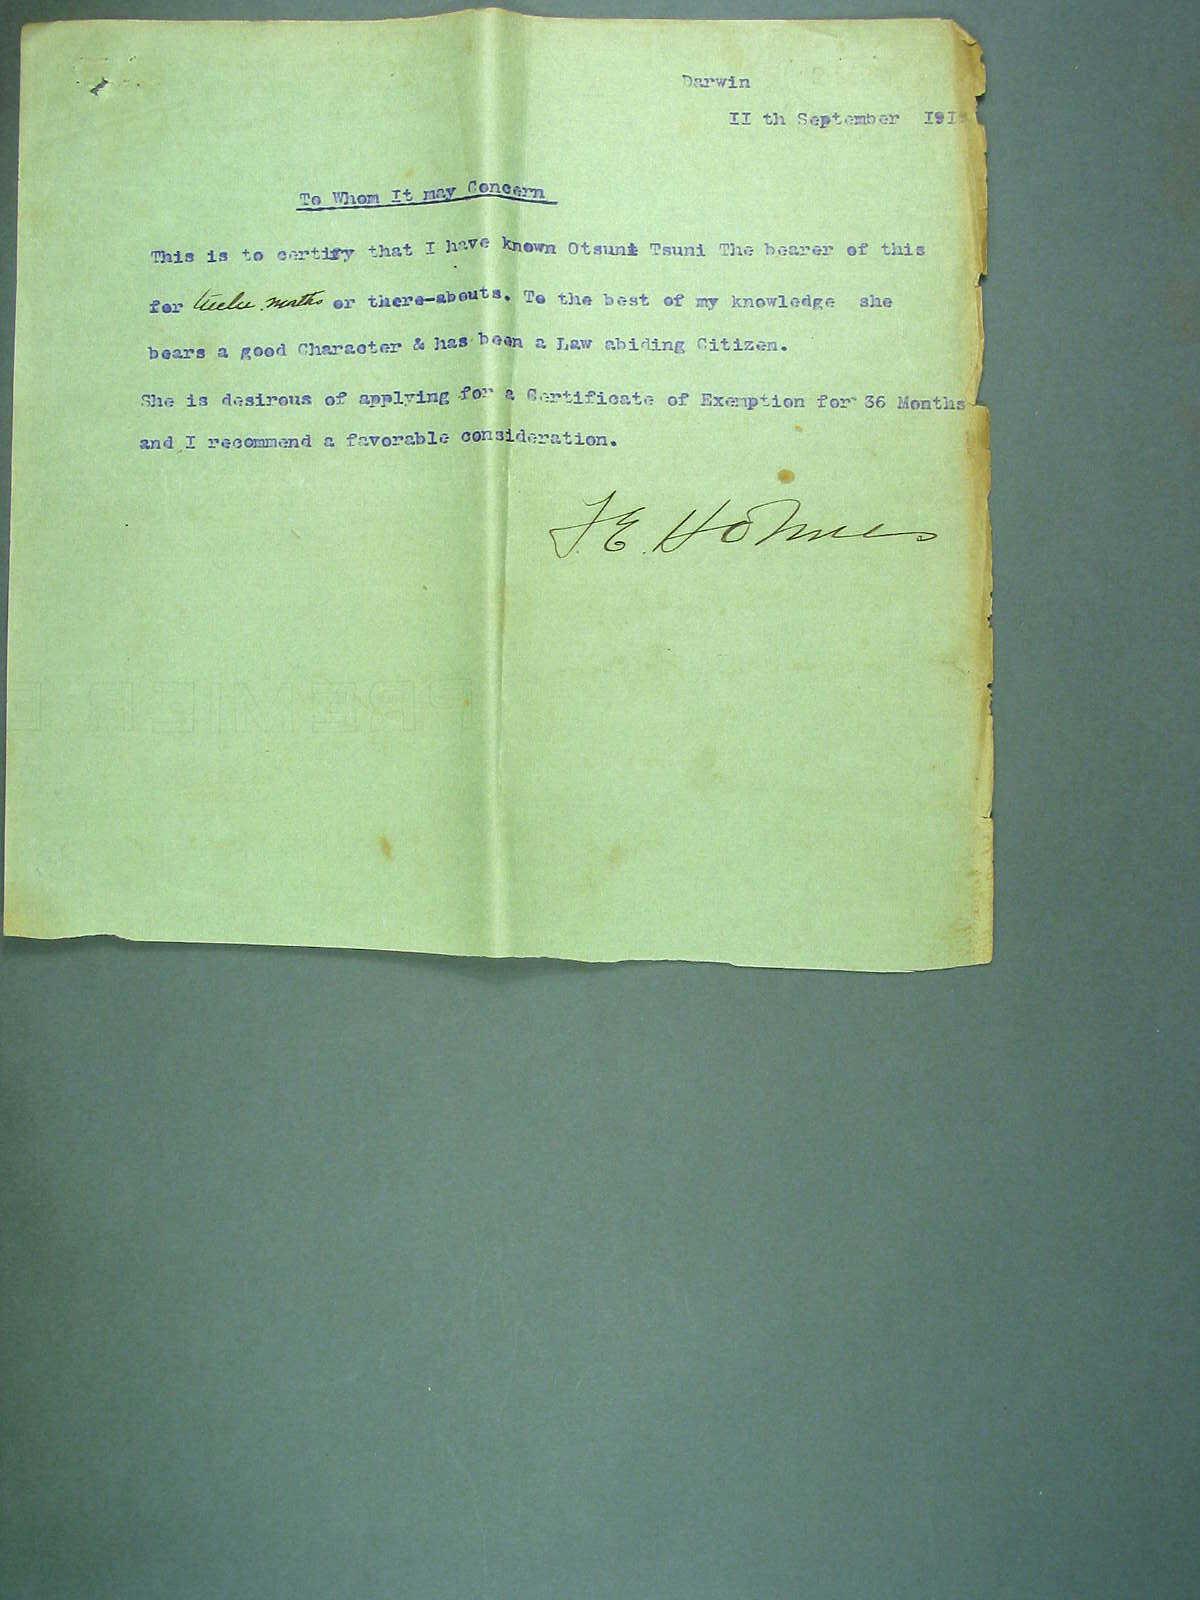 Darwin
II th September 191
To Whom It may Concern
This is to certify that I have known Otsuni Tsuni The bearer of this
for twelve months or there-abouts. To the best of my knowledge she
bears a good Character & has been a Law abiding Citizen.
She is desirous of applying for a Certificate of Exemption for 36 Months
and I recommend a favorable consideration.
F.E. Holmes
PREMIER